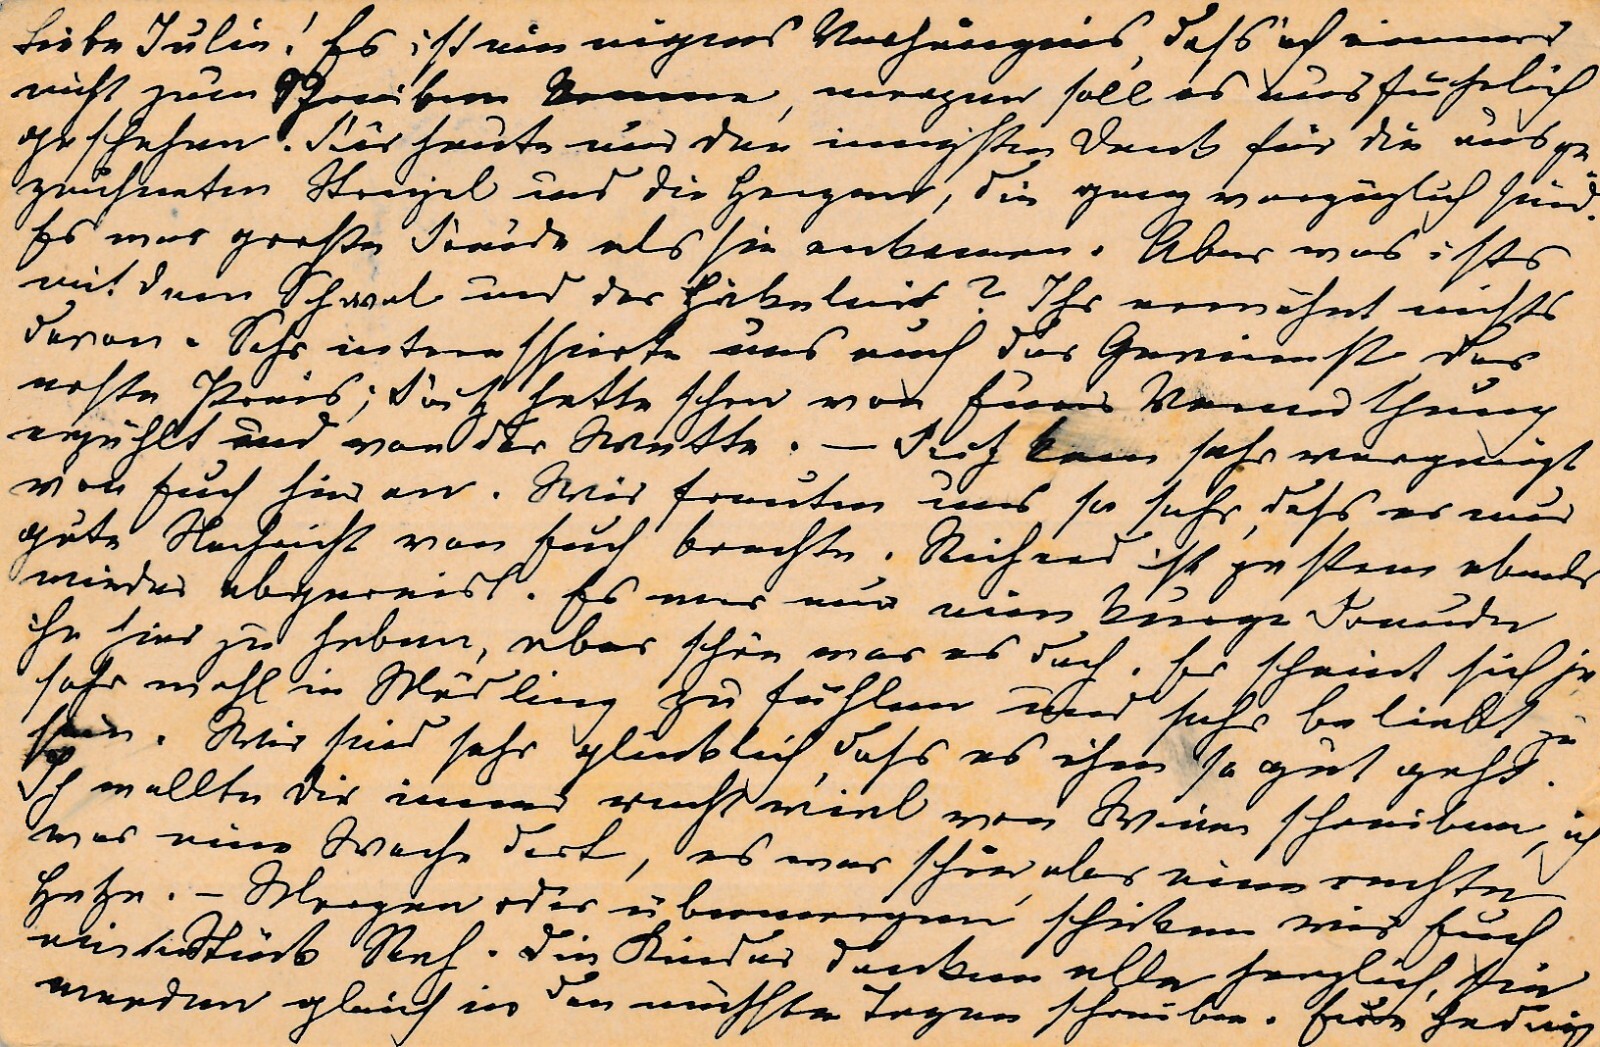 Liebe Julie! Es ist ein eignes Verhängnis, dass ich immer
nicht zum Schreiben komme, morgen soll es ausführlich
geschehen. Für heute nur den innigsten Dank für die ausge
zeichneten Striezel und die Herzen, die ganz vorzüglich sind.
Es war große Freude als sie ankamen. Aber was ists
mit dem Schwal und der Häkelnit? Ihr erwähnt nichts
davon. Sehr interessierte uns auch das der
erste Preis; hatte schon von Eurer Vermuthung
erzählt und von der Wette. — kam sehr vergnügt
von Euch hier an. Wir freuten uns so sehr, dass er nur
gute Nachricht von Euch brachte. Richard ist gestern abends
wieder abgereist. Es war nur eine kurze Freude
ihn hier zu haben, aber schön war es doch. Er scheint sich ja
sehr wohl in Mödling zu fühlen und sehr beliebt zu
sein. Wir sind sehr glücklich, dass es ihm so gut geht.
Ich wollte Dir immer recht viel von Wien schreiben, ich
war eine Woche dort, es war schön, aber eine rechte
Hetze. — Morgen oder übermorgen schicken wir Euch
ein Stück Reh. Die Kinder danken alle herzlich, sie
werden gleich in den nächsten Tagen schreiben. Eure Hedwig